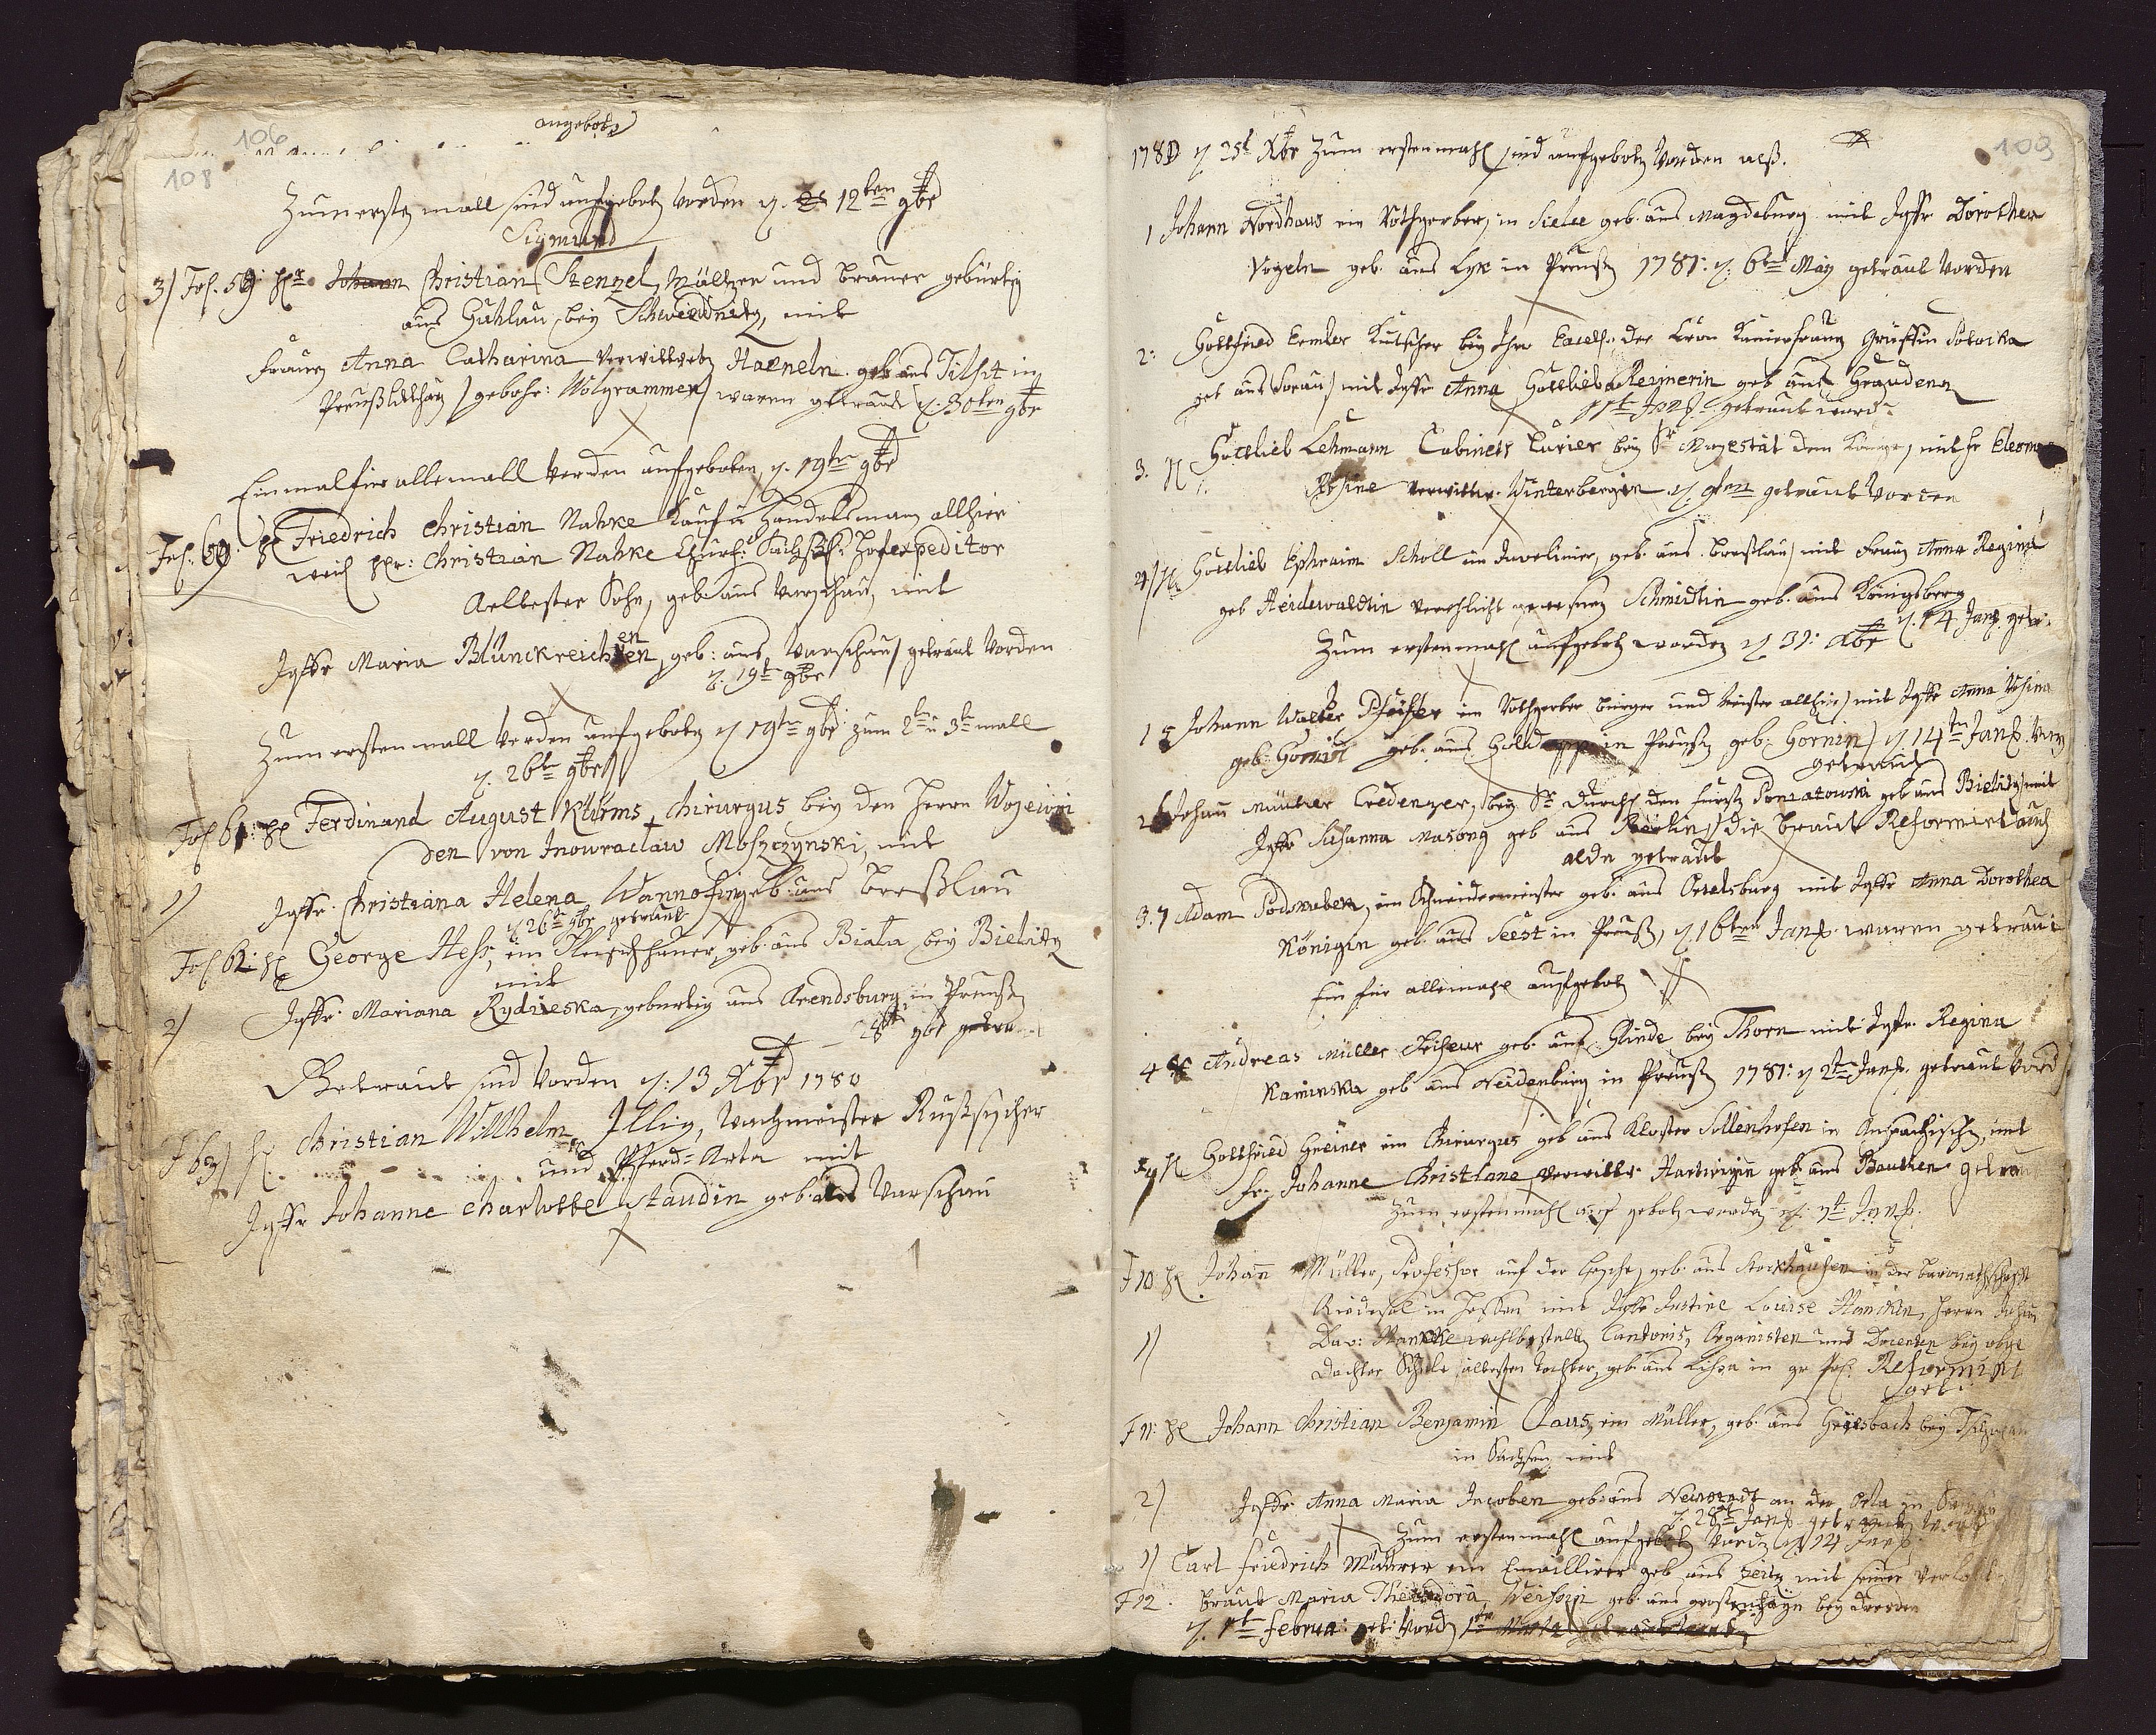 106
angeboten
108
Zum ersten mall sind aufgeboten worden d. 12ten 9br
Sigmund
3) Fol. 59: Hr Johann Christian Stenzel, Mältzer und Brauer gebürtig
aus Guhlau, bey Schweidnitz, mit
Frauen Anna Catharina Verwittwete Haeneln geb aus Tilsit in
Preuß Litthau, gebohr: Wolgrammen, waren getraut d. 30ten 9br
Einmal für allemall werden aufgeboten, d. 19ten 9br
Fol. 60: H Friedrich Christian Nahke Kauf u Handelsmann allhier
weil Hr: Christian Nahke Churf: Sächsl. Hofexpeditor
Aeltester Sohn, geb: aus Warschau, mit
Jgfr Maria Blunckreichen, geb: aus Warschau, getraut worden
d. 19t 9br
Zum ersten mall werden aufgeboten d 19ten 9br zum 2ten u 3ten mall
d. 26ten 9br
Fol 61: H Ferdinand August Kürms, Chirurgus bey den Herrn Wojewo
den von Inowraclaw Mosszczynski, mit
1) Jgfr. Christiana Helena Wannofin geb: aus Breßlau
d 26t 9br getraut
Fol 62: H George Hess, ein Fleischhauer, geb: aus Biala bey Bielitz
mit
2) Jgfr. Mariana Rydzeska, gebürtig aus Arendsburg in Preußen
28t 9br getra
Getraut sind worden d: 13 Xbr 1780
F 63) H. Christian Willhelm Illig, Wachmeister Rußischer
und Pferd=Arta mit
Jgfr Johanne Charlotte Staudin geb: aus Warschau
103
1780 d 25t Xbr Zum erstenmahl sind aufgeboten worden alß.
1 Johann Nordhaus ein Rothgerber, in geb: aus Magdeburg mit Jgfr Dorothea
Vogeln geb. aus Lyk in Preußen 1781: d: 6ten May getraut worden
2: Gottfried Ermler Kutscher bey Ihro Excell. der Cron Gräffin Potocka
geb aus Sorau, mit Jgfr Anna Gottlieba Reimerin geb aus Graudenz
getraut word
3. H Gottlieb Lehmann Cabinets Curier bey Sr Majestät dem König, mit Fr Eleono
Rosine Verwittw. Winterbergin d. 9ten getraut worden
4) H. Gottlieb Ephraim Scholl ein Juvelirer, geb. aus Breßlau, mit Frau Anna Regina
geb Heidewaldtin verehlicht gewesene Schmidtin geb. aus Königsberg
d. 14 Jan. getr.
Zum erstenmahl aufgeboten worden d 31: Xbr
1 5 Johann Walter Pfeifer ein Rothgerber Bürger und Meister allhier, mit Jgfr Anna Rosina
geb: Hornin geb: aus Goldapp in Preußen geb: Hornin, d. 14ten Jan. 
getraut
2 6 Johann Müller Credenzer, bey Sr Durchl den Fürsten Poniatowski geb aus Bielitz, mit
Jgfr Susanna Masong geb aus Berlin, die Braut Reformirt auch
alda getraut
3. 7 Adam Podsrabek, ein Schneidermeister geb: aus Ortelsburg mit Jgfr Anna Dorothea
Königin geb: aus Seest in Preuß, d. 16ten Jan. waren getraut
Ein für allemahl aufgeboten
4 8 Andreas Müller Friseur geb. aus Glinde bey Thorn mit Jgfr. Regina
Kaminska geb aus Neidenburg in Preußen 1781: d 2ten Jan. getraut word
9 H Gottfried Greiner ein Chirurgus geb aus Kloster Sollenhofen in Anspachischen, mit
Fr. Johanne Christiane verwittw Hartwigin geb aus Bautzen getra
Zum erstenmahl auf geboten worden d. 7t Jan.
F 10 H Johann Müller, Professor auf der geb. aus Stockhausen in der
Riedesel in Hessen mit Jgfr Justine Louise Mancken, Herrn Johan
1) Dav: Mancke wohlbestalten Cantoris, Organisten und Docenten bey obge
dachter Schule ältesten Tochter, geb: aus Lissa in gr Pol: Reformirt
get.
F 11: H Johann Christian Benjamin Claus, ein Müller, geb. aus Geresbach bey
in Sachsen mit
2) Jgfr. Anna Maria Jacoben geb: aus Neustadt an der Orla in Sachsen
d. 28t Jan. getraut word
Zum erstenmahl aufgeboten worden d 14 Jan.
1) Carl Friedrich Mäurer ein Emaillirer geb aus Zeitz mit seiner verlobt
F 12. Braut Maria Theodora Weissin geb: aus grossenhayn bey Dresden
d. 1t Februa: get: word